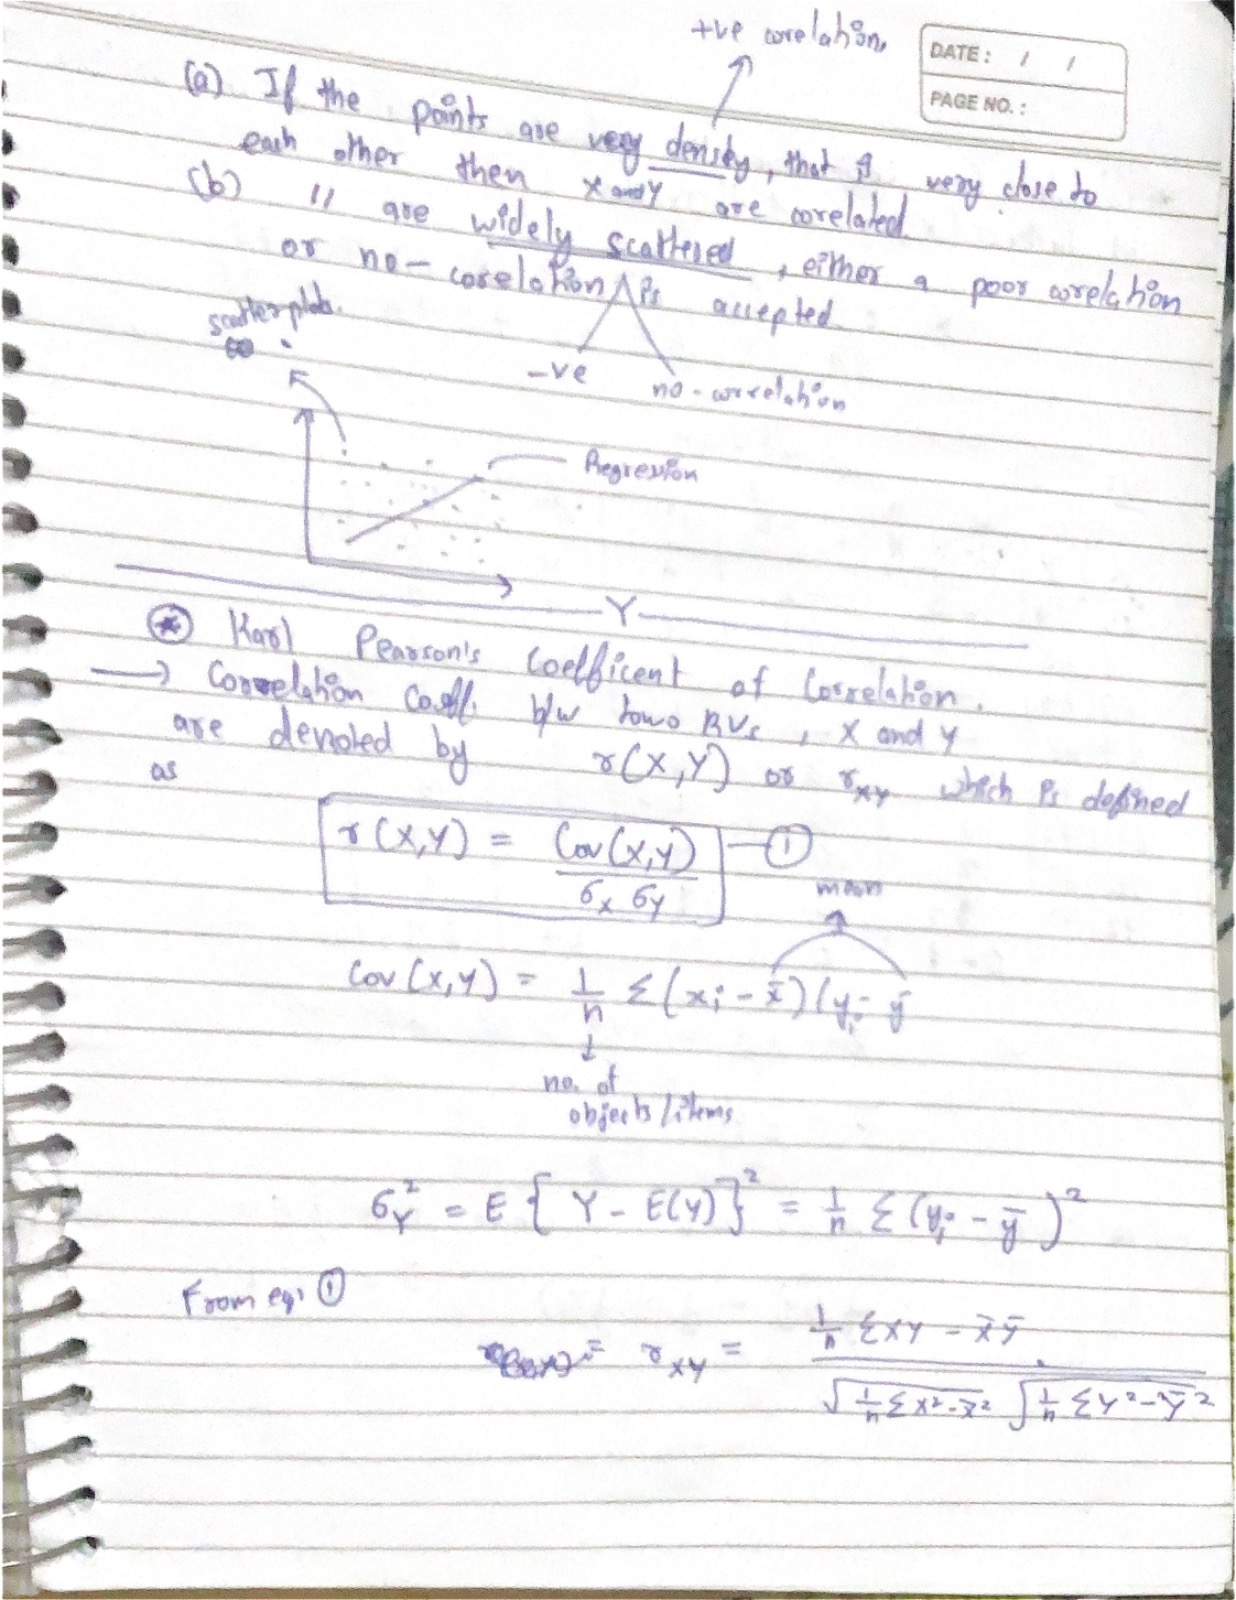 +ve corelation
DATE: / /
PAGE NO.:
(a) If the points are very density, that is very close to
each other then X and Y are corelated
(b) " are widely scattered, either a poor corelation
or no-corelation is accepted
-ve no-correlation
scatter plot.
Regression
Y
* Karl Pearson's Coefficent of Correlation.
→ Correlation Coeff. b/w towo RVs, X and Y
are denoted by r(X,Y) or rxy which is defined
as
r(X,Y) = Cov(X,Y) / σx σy — ①
mean
Cov(X,Y) = 1/n Σ(xi - x̄)(yi - ȳ
↓
no. of
objects/items
σY² = E{Y - E(Y)}² = 1/n Σ(yi - ȳ)²
From eq: ①
= rXY = (1/n ΣXY - x̄ȳ) / (√(1/n ΣX² - x̄²) √(1/n ΣY² - ȳ²))